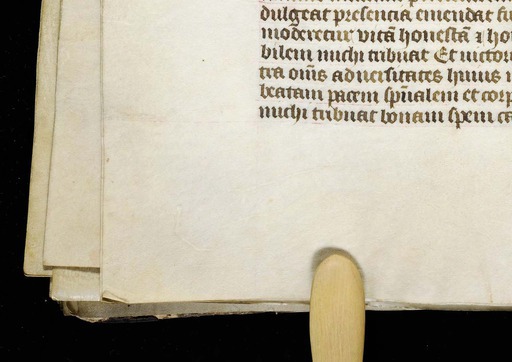 dulgeat presenciā emendat fu
moderetur vitā honestā ⁊ ho
bilem michi tribuat Et victori
tra om̄s aduersitates huius
beatam pacem spūalem et corp
michi tribuat bonam spem ca